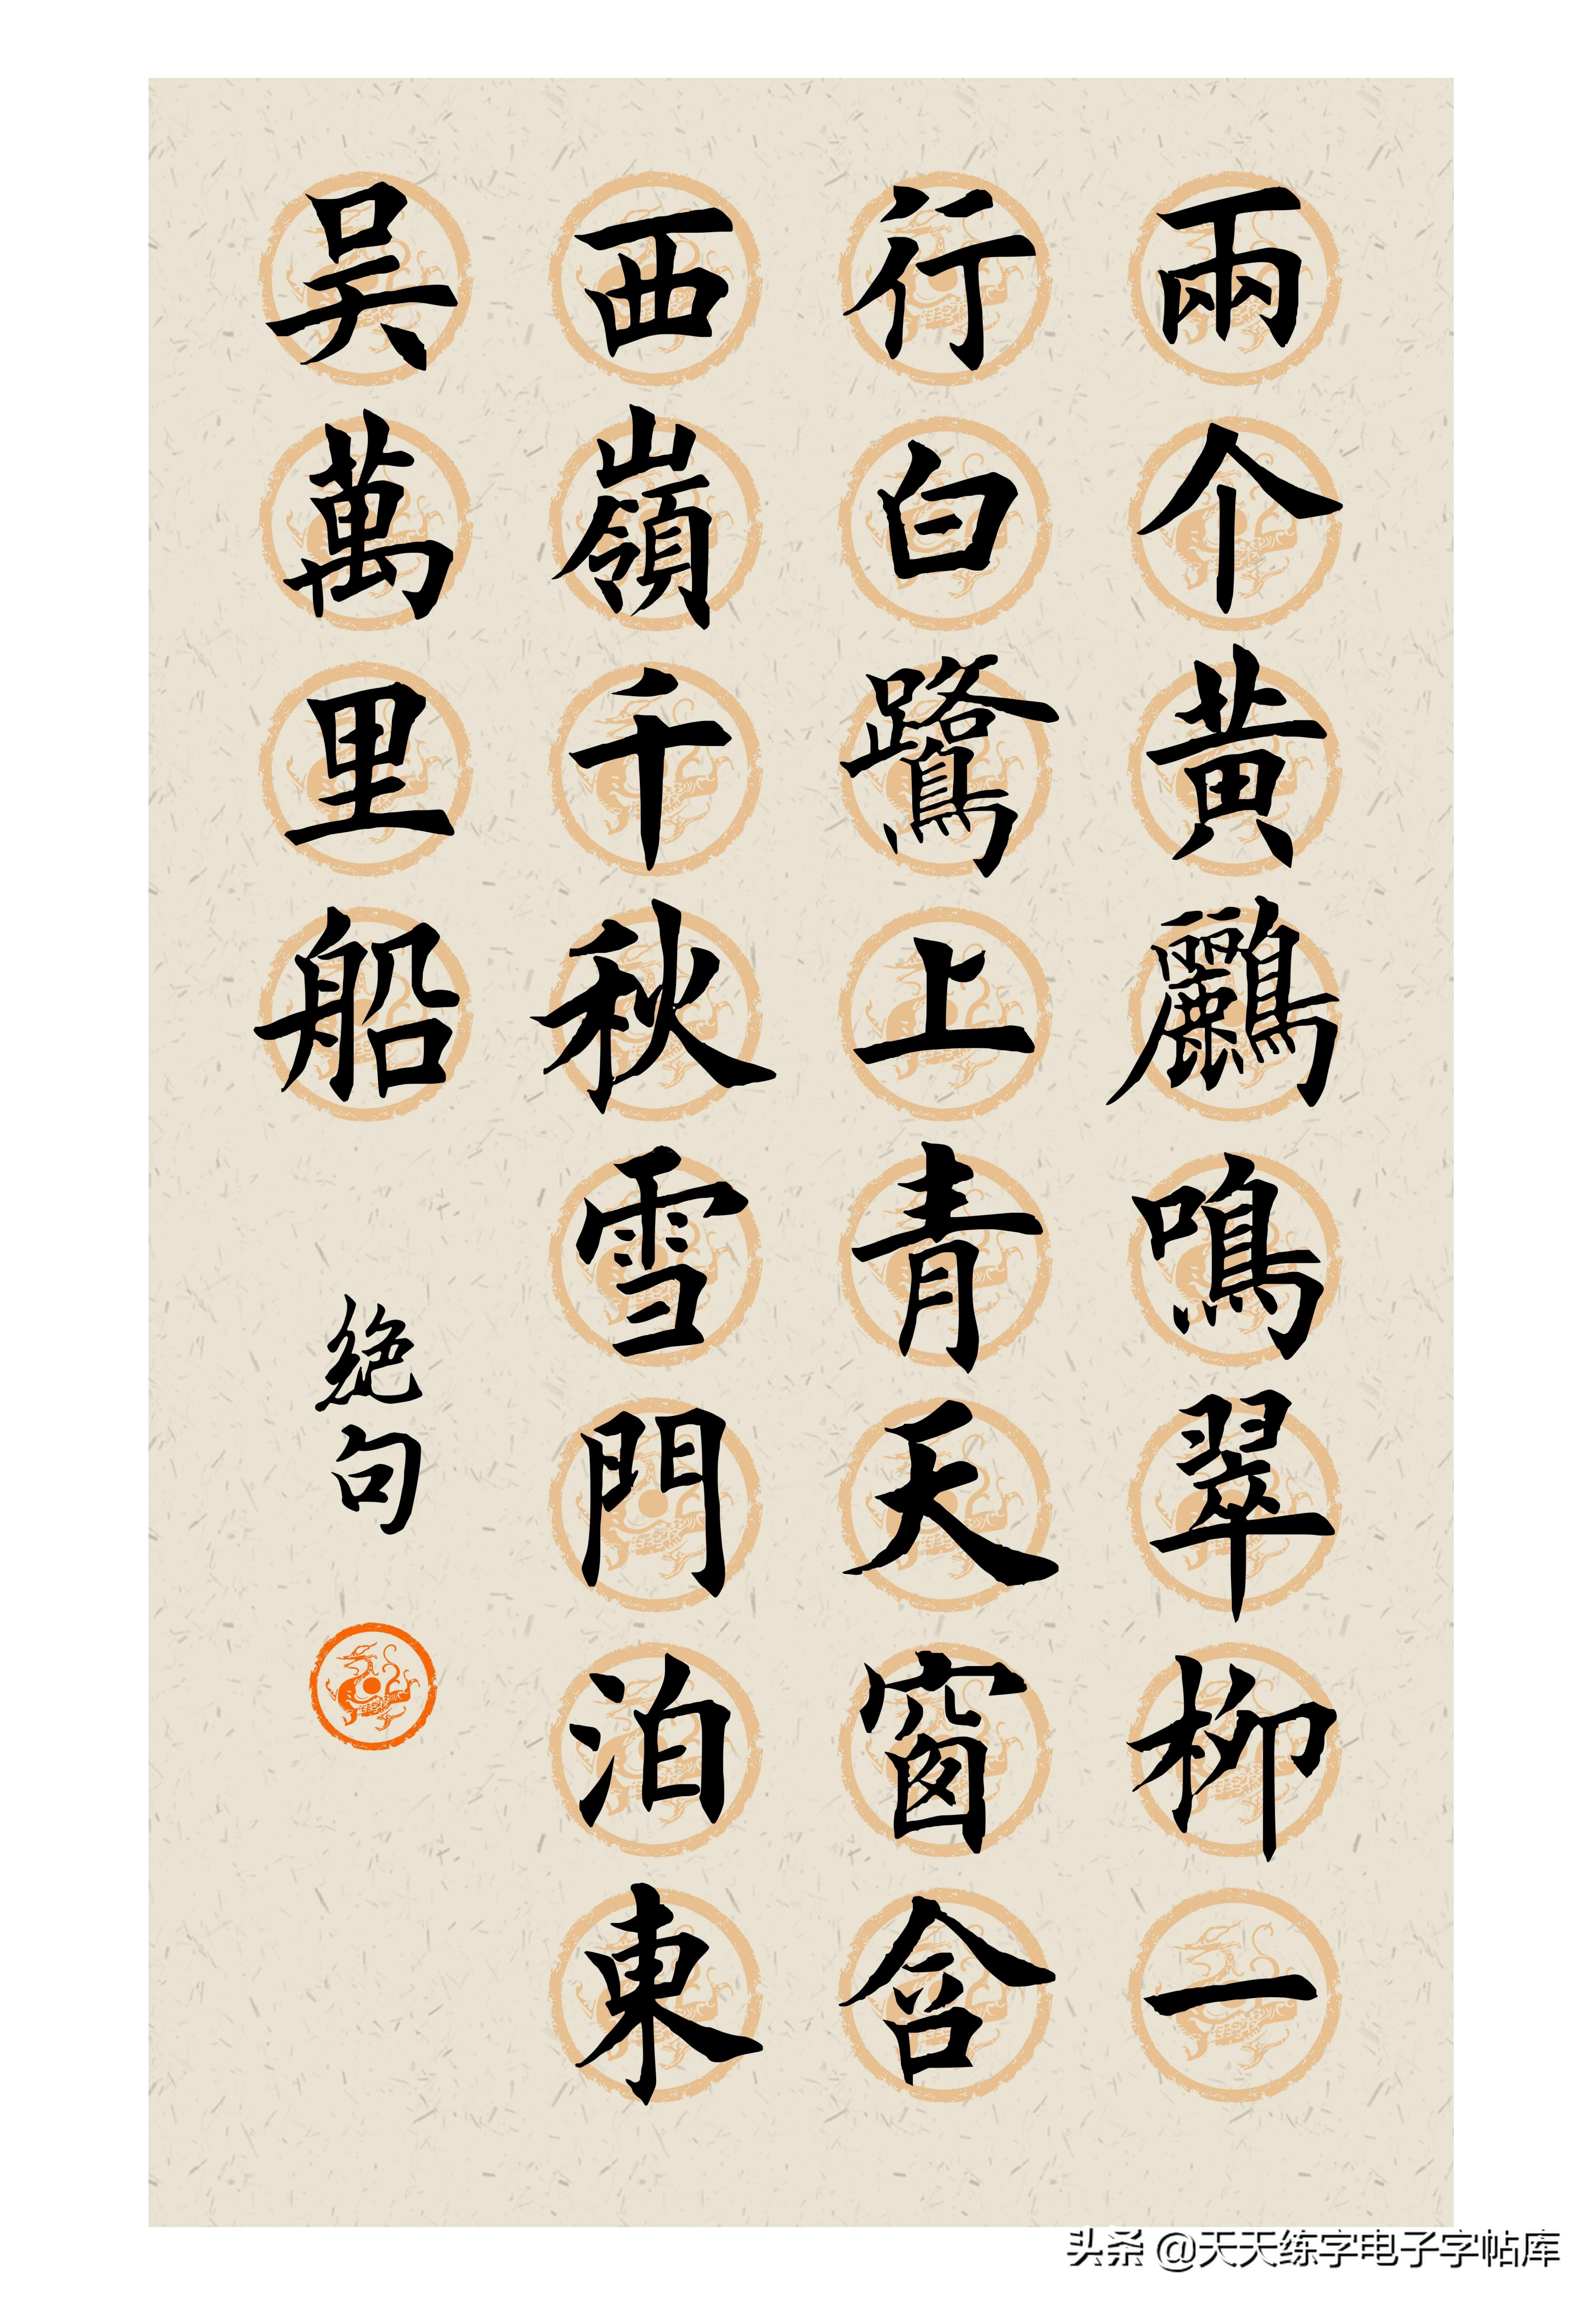 兩个黃鸝鳴翠柳一
行白鷺上青天窗含
西嶺千秋雪門泊東
吴萬里船
绝句
头条 @天天练字电子字帖库